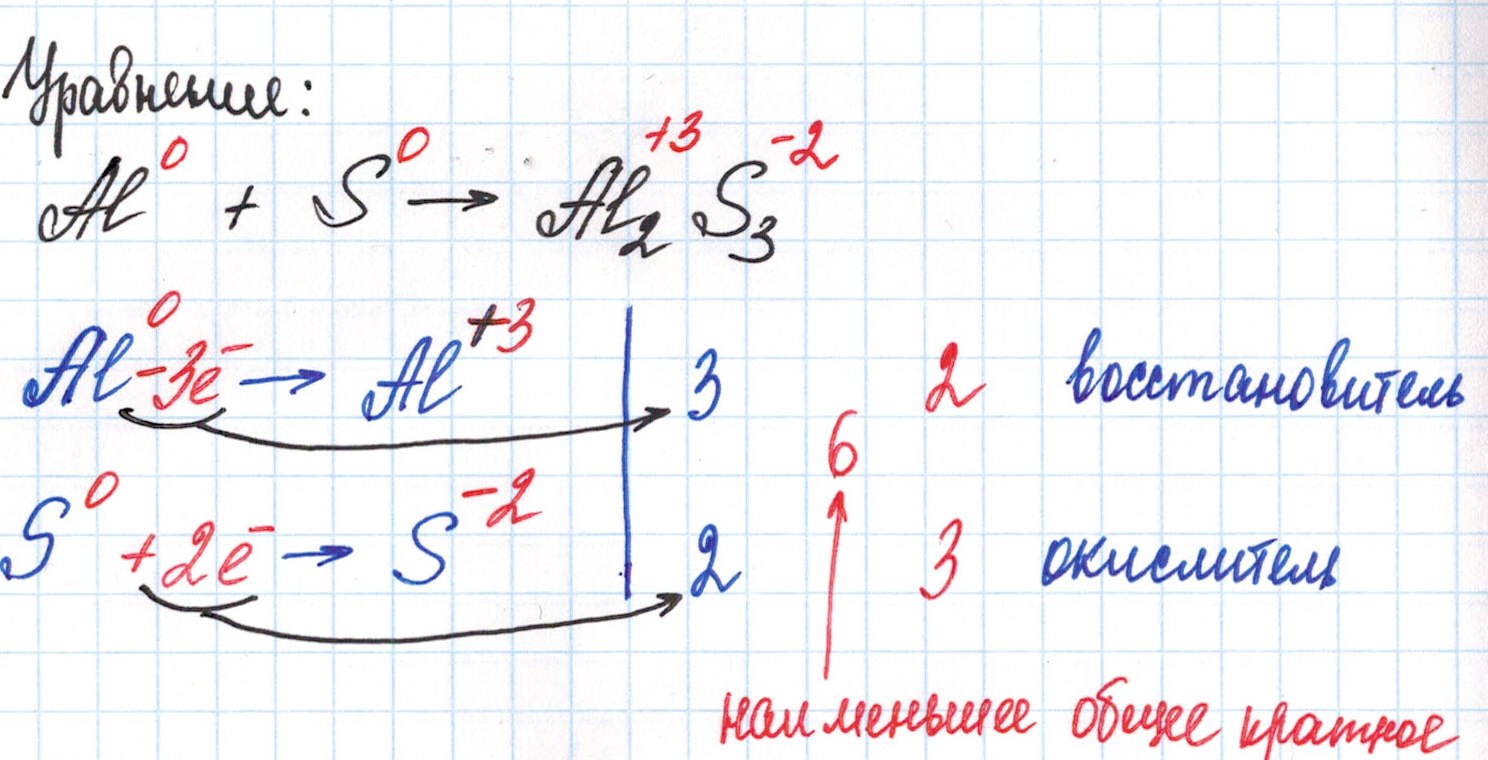 Уравнение:
Al⁰ + S⁰ → Al₂⁺³ S₃⁻²
Al⁰ -3e⁻ → Al⁺³ | 3 2 восстановитель
6
S⁰ +2e⁻ → S⁻² | 2 3 окислитель
наименьшее общее кратное